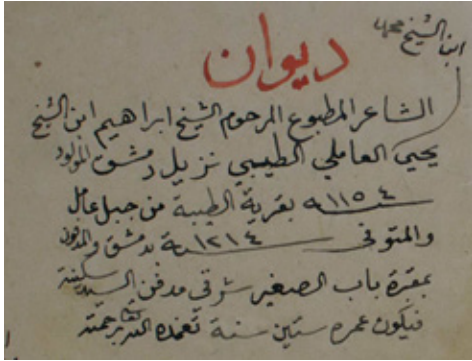 ديوان
ابن الشيخ محمد
الشاعر المطبوع المرحوم الشيخ ابراهيم ابن الشيخ
يحيى العاملي الطيبي نزيل دمشق المولود
سنة ١١٥٤ بقرية الطيبة من جبل عامل
والمتوفى سنة ١٢١٤ بدمشق والمدفون
بمقبرة باب الصغير شرقي مدفن السيدة سكينة
فيكون عمره ستين سنة تغمده الله تعالى برحمته